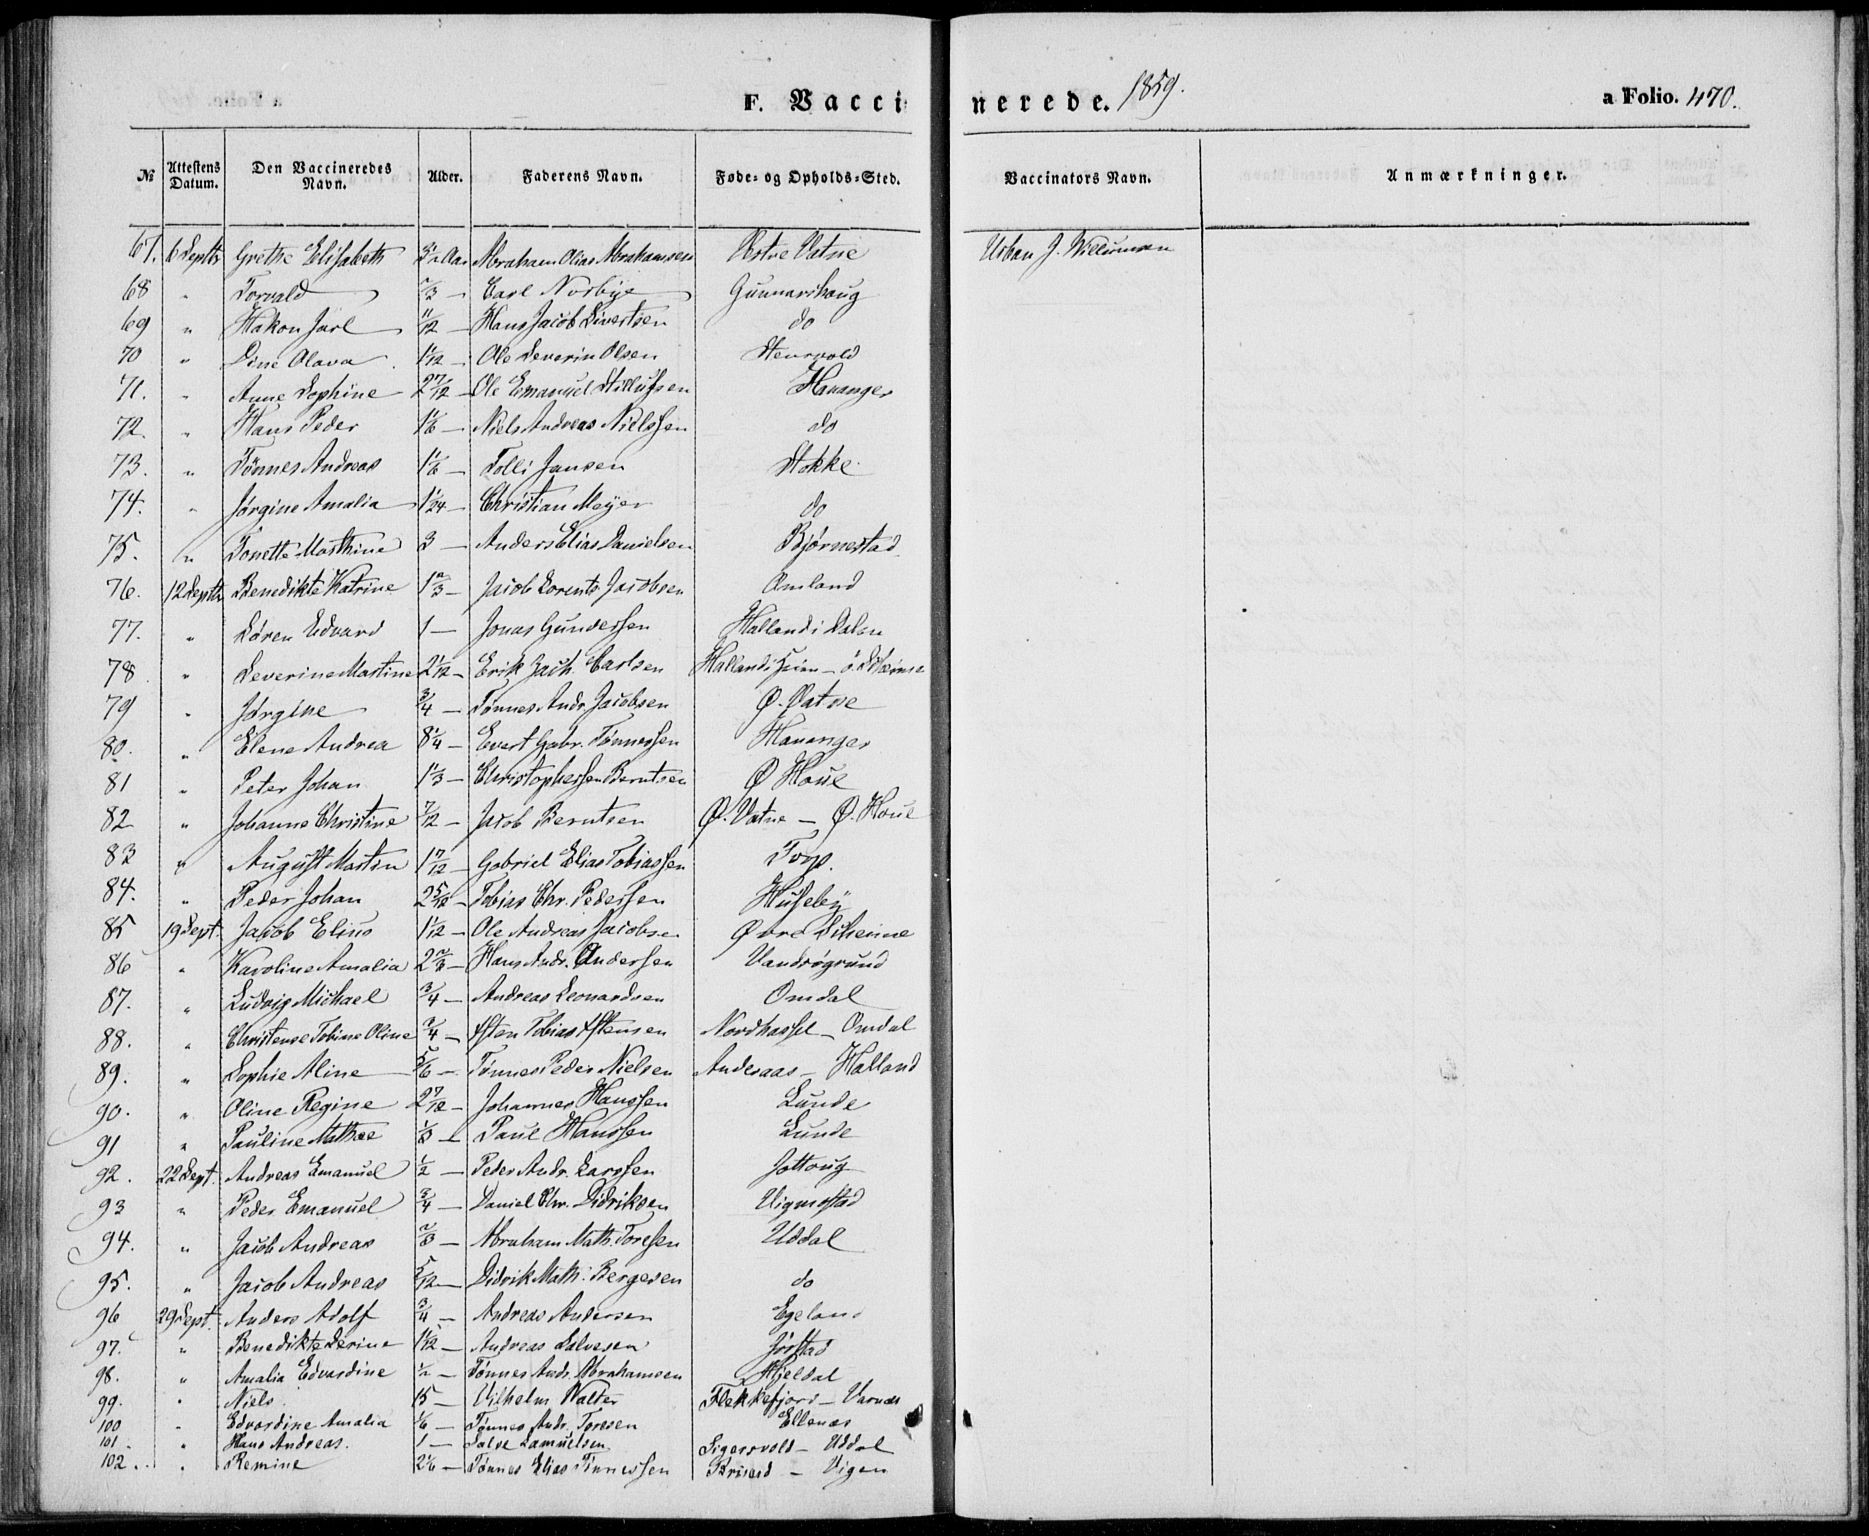 F. Vaccinerede. 1859. a Folio. 470.
№ Attestens Datum. Den Vaccineredes Navn. Alder. Faderens Navn. Føde- og Opholds-Sted. Vaccinators Navn. Anmærkninger.
67. 6 Septbr Grethe Elisabeth Aar Abraham Olias Abrahamsen Østre Vatne Urban J. Willumsen
68 " Torvald 2/3 — Carl Norbye Gunnarshaug
69 " Hakon Jarl 11/12 — Hans Jacob Sivertsen do
70 " Sine Olava 1 1/12 — Ole Severin Olsen
71. " Anne Sophine 2 7/12 — Ole Emanuel Hauanger
72. " Hans Peder 1 1/6 — Niels Andreas Nielssen do
73. " Tønnes Andreas 1 1/6 — Tolli Jansen Stokke
74. " Jørgine Amalia 1 1/24 — Christian Meyer do
75. " Tonette Marthine 3 — Anders Elias Danielsen Bjørnestad
76. 12 Septbr Benedikte Katrine 1 2/3 — Jacob Lorents Jacobsen Omland
77. " Søren Edvard 1 — Jonas Gunderssen Halland i Dalen
78 " Severine Martine 2 1/12 — Erik Zach. Carlsen Halland i Heien —
79 " Jørgine 3/4 — Tønnes Andr. Jacobsen Ø. Vatne
80. " Elene Andrea 8 1/4 — Evert Gabr. Tønnessen Hauanger
81 " Peter Johan 1 1/3 — Christopherssen Berntsen Ø Houe
82 " Johanne Christine 7/12 — Jacob Berntsen Ø. Vatne — Ø. Houe
83 " August Martin 1 7/12 — Gabriel Elias Tobiassen Torp.
84. " Peder Johan 2 5/12 — Tobias Chr. Pederssen Huseby
85 19 Sept. Jacob Elius 1 1/12 — Ole Andreas Jacobsen Øvre
86 " Karoline Amalia 2 2/3 — Hans Andr. Anderssen Vandrøgrund
87. " Ludvig Michael 3/4 — Andreas Leonardsen Omdal
88. " Christense Tobine Oline 3/4 — Asten Tobias Astensen Nordhassel — Omdal
89. " Sophie Aline 5/6 — Tønnes Peder Nielsen Andesaas — Halland
90. " Oline Regine 2 7/12 — Johannes Hanssen Lunde
91 " Pauline Mathea 1/3 — Paul Hanssen Lunde
92. 22 Sept. Andreas Emanuel 1/2 — Peder Andr. Larssen
93 " Peder Emanuel 3/4 — Daniel Chr. Didriksen Vigmostad
94. " Jacob Andreas 2/3 — Abraham Math. Toressen Uddal
95. " Jacob Andreas 5/12 — Didrik Math. Bergesen do
96 29 Sept. Anders Adolf 3/4 — Andreas Andersen Egeland
97. " Benedikte Serine 1 1/12 — Andreas Salvesen Jørstad
98. " Amalia Edvardine 1/2 — Tønnes Andr. Abrahamsen Hjeldal
99. " Niels 15 — Vilhelm Walter Flekkefjord —
100 " Edvardine Amalia 1/6 — Tønnes Andr. Toresen Ellenæs
101. " Hans Andreas. 1 — Salve Samuelsen Sigersvold — Uddal
102. " Remine 2 1/6 — Tønnes Elias Tønnessen — Vigen